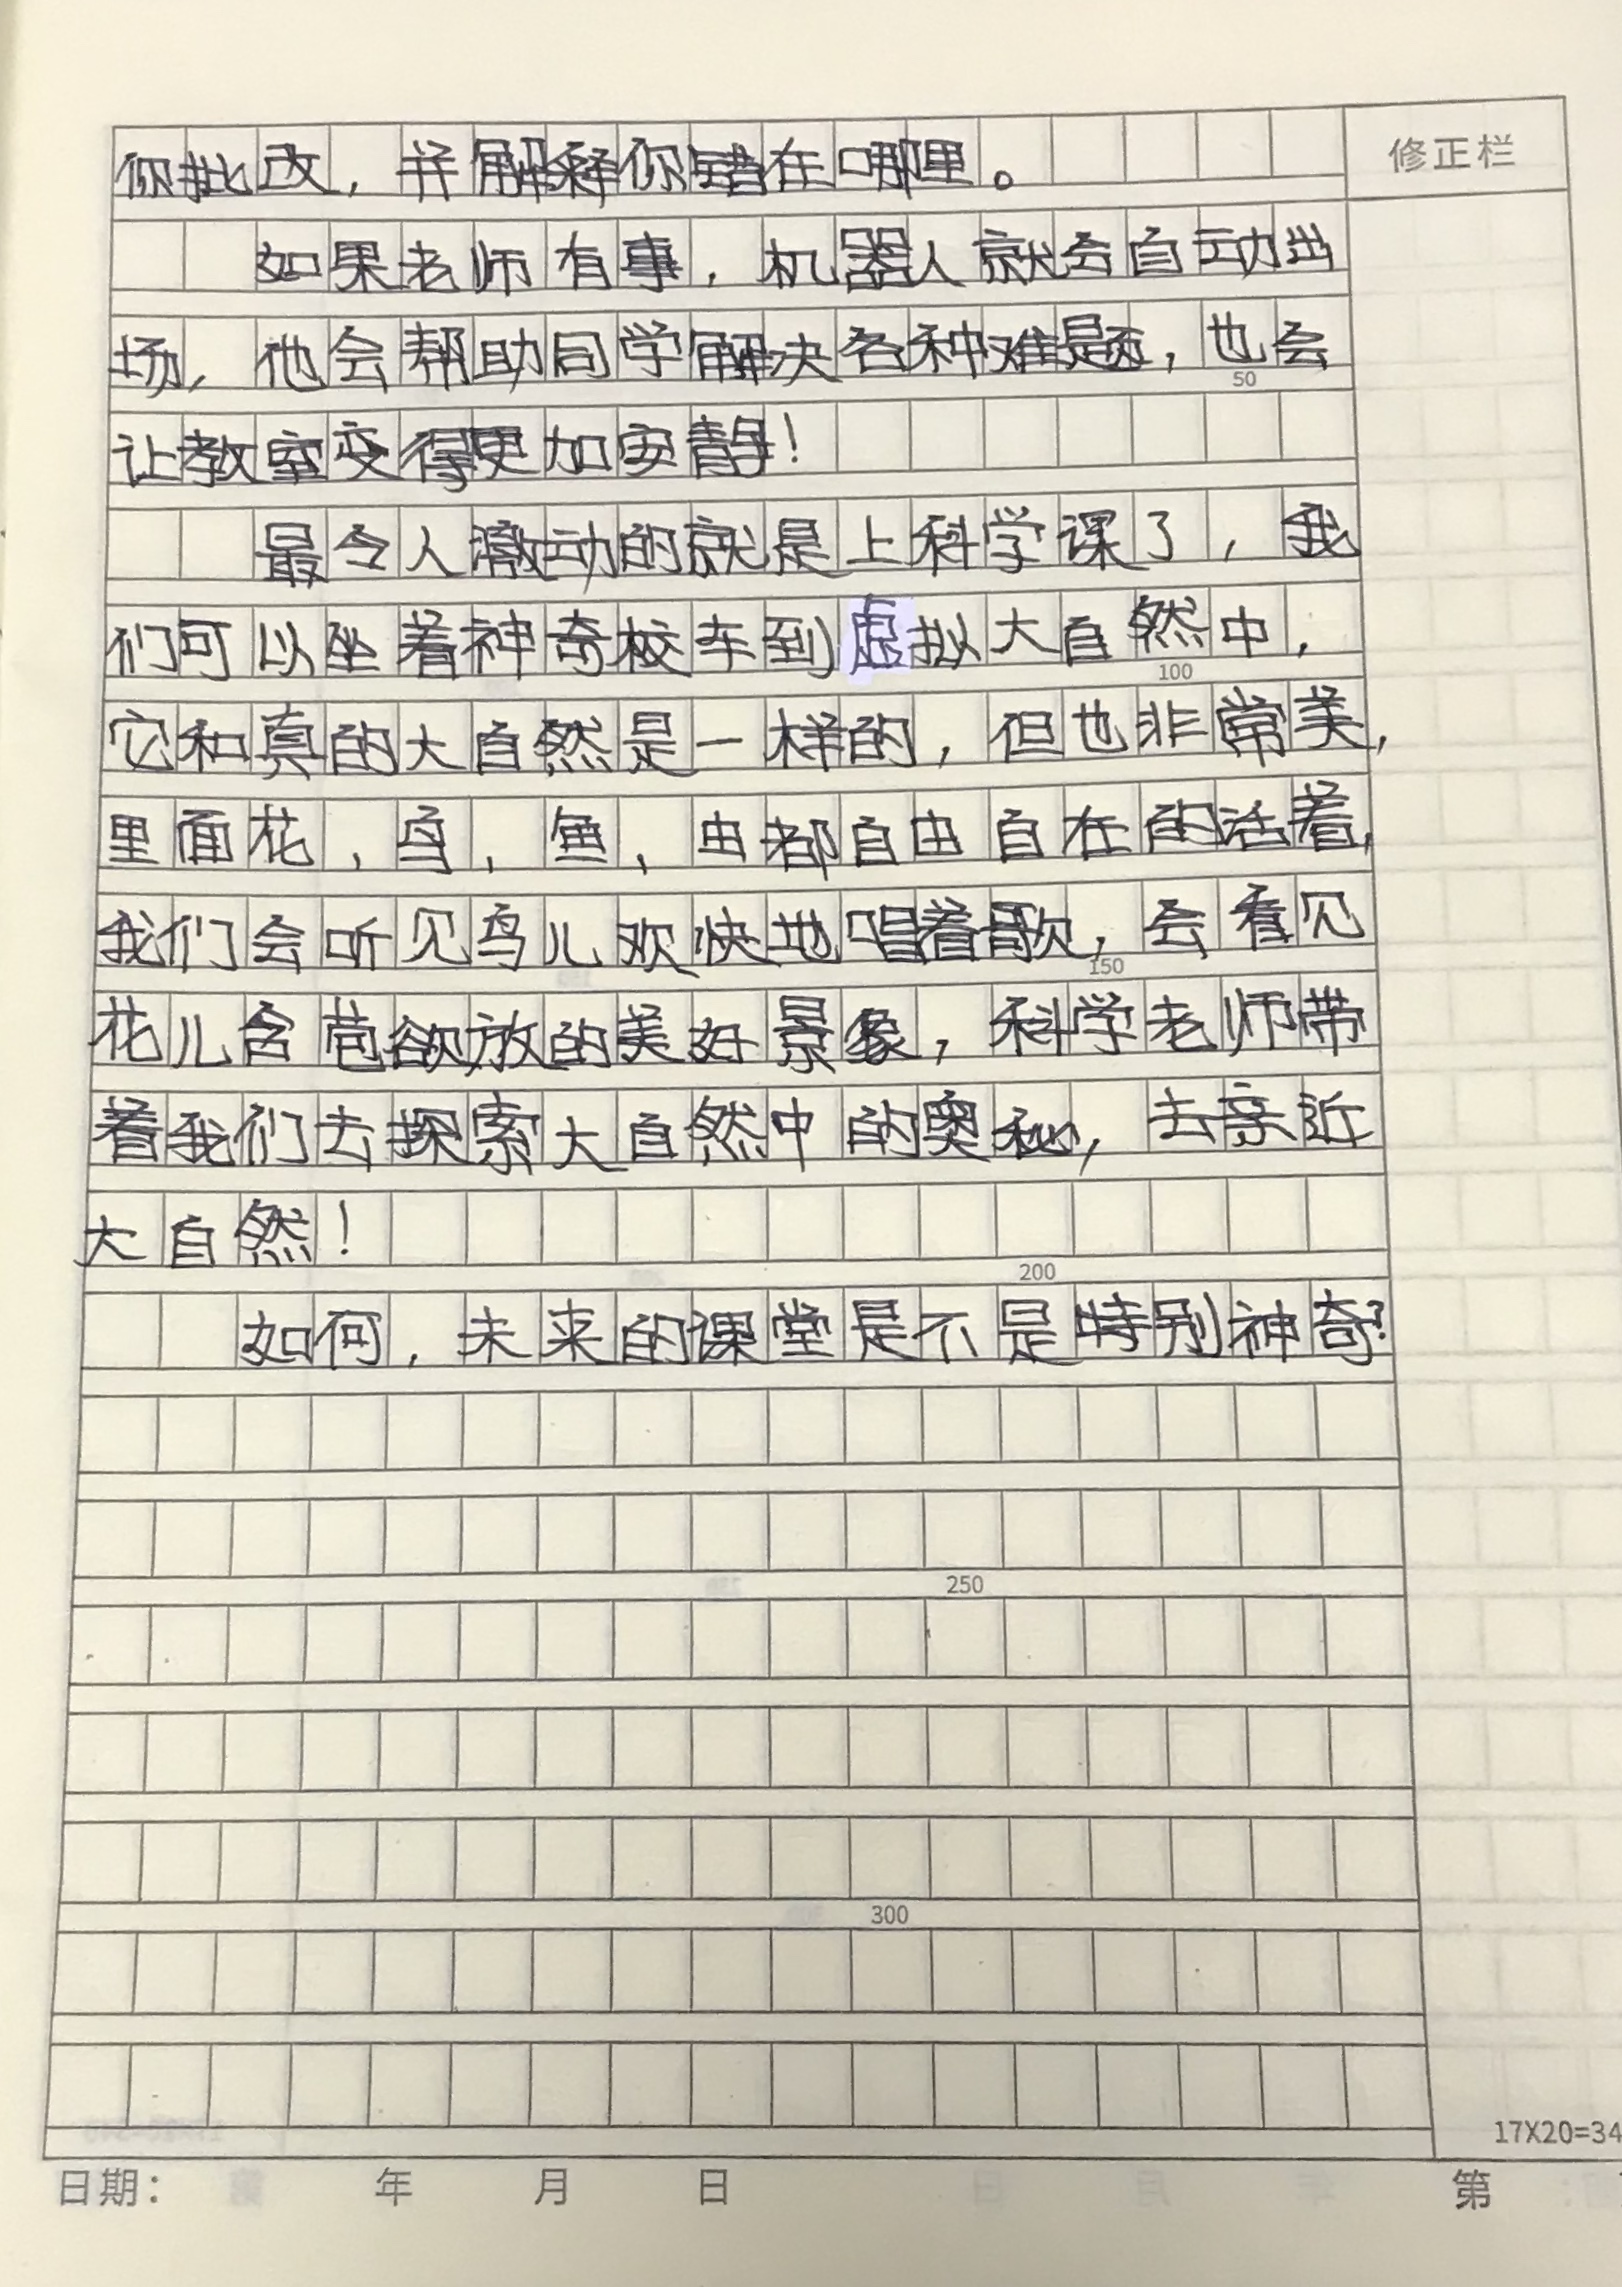 你批改，并解释你错在哪里。
修正栏
如果老师有事，机器人就会自动出
场，他会帮助同学解决各种难题，也会
50
让教室变得更加安静！
最令人激动的就是上科学课了，我
们可以坐着神奇校车到虚拟大自然中，
100
它和真的大自然是一样的，但也非常美，
里面花，鸟，鱼，虫都自由自在的活着，
我们会听见鸟儿欢快地唱着歌，会看见
150
花儿含苞欲放的美好景象，科学老师带
着我们去探索大自然中的奥秘，去亲近
大自然！
200
如何，未来的课堂是不是特别神奇？
250
300
17X20=34
日期： 年 月 日 第